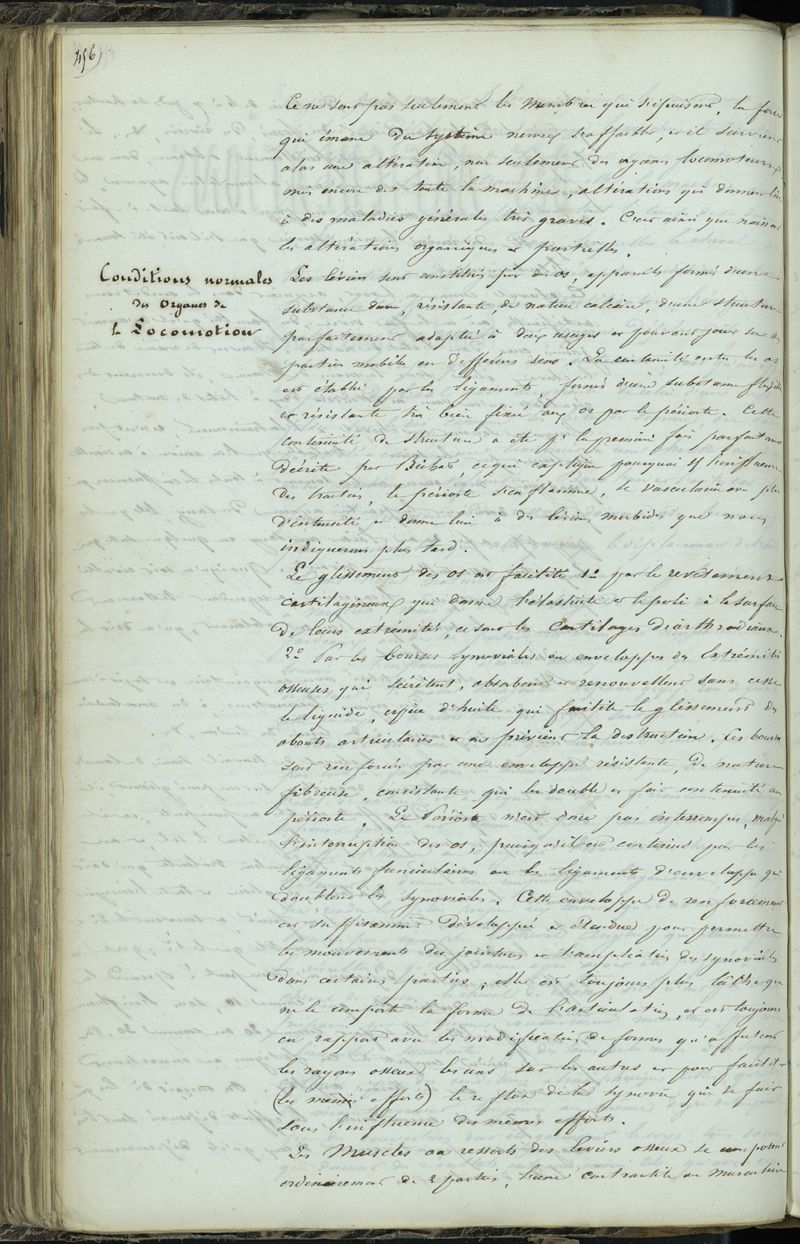 456)
Ce ne sont pas seulement les Membres qui s'épuisent, la force
qui émane du système nerveux s'affaiblit, et il survient
alors une altération, non seulement des organes locomoteurs,
mais encore de toute la machine, altérations qui donnent lieu
à des maladies générales très graves. C'est ainsi que naissent
les altérations organiques et partielles.
Conditions normales
des Organes de
la Locomotion
Les léviers sont constitués par des os, appareils formés d'une
substance dure, résistante, de nature calcaire, d'une structure
parfaitement adaptée à deux usages et pouvant jouer sur des
parties mobiles en différens sens. La continuité entre les os
est établie par les ligaments, formés d'une substance flexible
et résistante très bien fixée aux os par le périoste. Cette
continuité de structure a été pr la première fois parfaitement
décrite par Bichat, ce qui explique pourquoi sous l'influence
des tractions, le périoste s'enflamme, se vascularise avec plus
d'intensité et donne lieu à des lésions morbides que nous
indiquerons plus tard.
Le glissement des os est facilité 1o par le revêtement
cartilagineux qui donne l'élasticité et le poli à la surface
de leurs extrémités, ce sont les Cartilages diarthrodiaux.
2o Par les bourses synoviales ou enveloppes des extrémités
osseuses qui sécrètent, absorbent et renouvellent sans cesse
le liquide, espèce d'huile qui facilite le glissement des
abouts articulaires et en prévient la destruction. Ces bourses
sont renforcées par une enveloppe résistante, de nature
fibreuse, consistante qui les double et fait continuité au
périoste. Le Périoste n'est donc pas interrompu, malgré
l'interruption des os, puisqu'il est continué par les
ligaments funiculaires ou les ligaments d'enveloppe qui
doublent les synoviales. Cette enveloppe de renforcement
est suffisamment développée et étendue pour permettre
les mouvements des jointures et l'ampliation des synoviales
dans certaines parties; elle est toujours plus lâche que
ne le comporte la forme de l'articulation, et est toujours
en rapport avec les modifications de formes qu'affectent
les rayons osseux les uns sur les autres et pour faciliter
(les mêmes efforts) le reflux de la synovie qui se fait
sous l'influence des mêmes efforts.
Les Muscles ou ressorts des leviers osseux se composent
ordinairement de 2 parties, l'une contractile ou musculaire